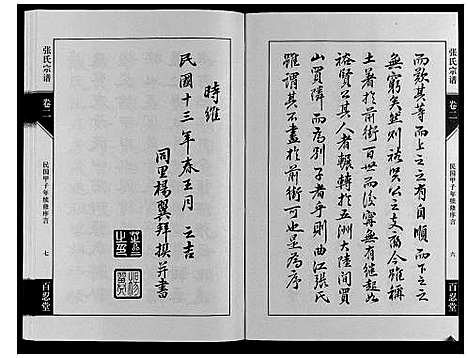 张氏宗谱
卷二
民国甲子年续修序言
六
百忍堂
而歎其等而上之之有自順而下之之
無窮矣然則裕昊公之支丙今雖稱
土著於前街百世而法寧無有继起如
裕賢公其人者輾轉於五洲大陸間買
山買隣而為别子者乎則曲江張氏
雖謂其不盡於前街可也是為序
時維
民國十三年春王月之吉
同里楊翼拜撰并書
张氏宗谱
卷二
民国甲子年续修序言
七
百忍堂